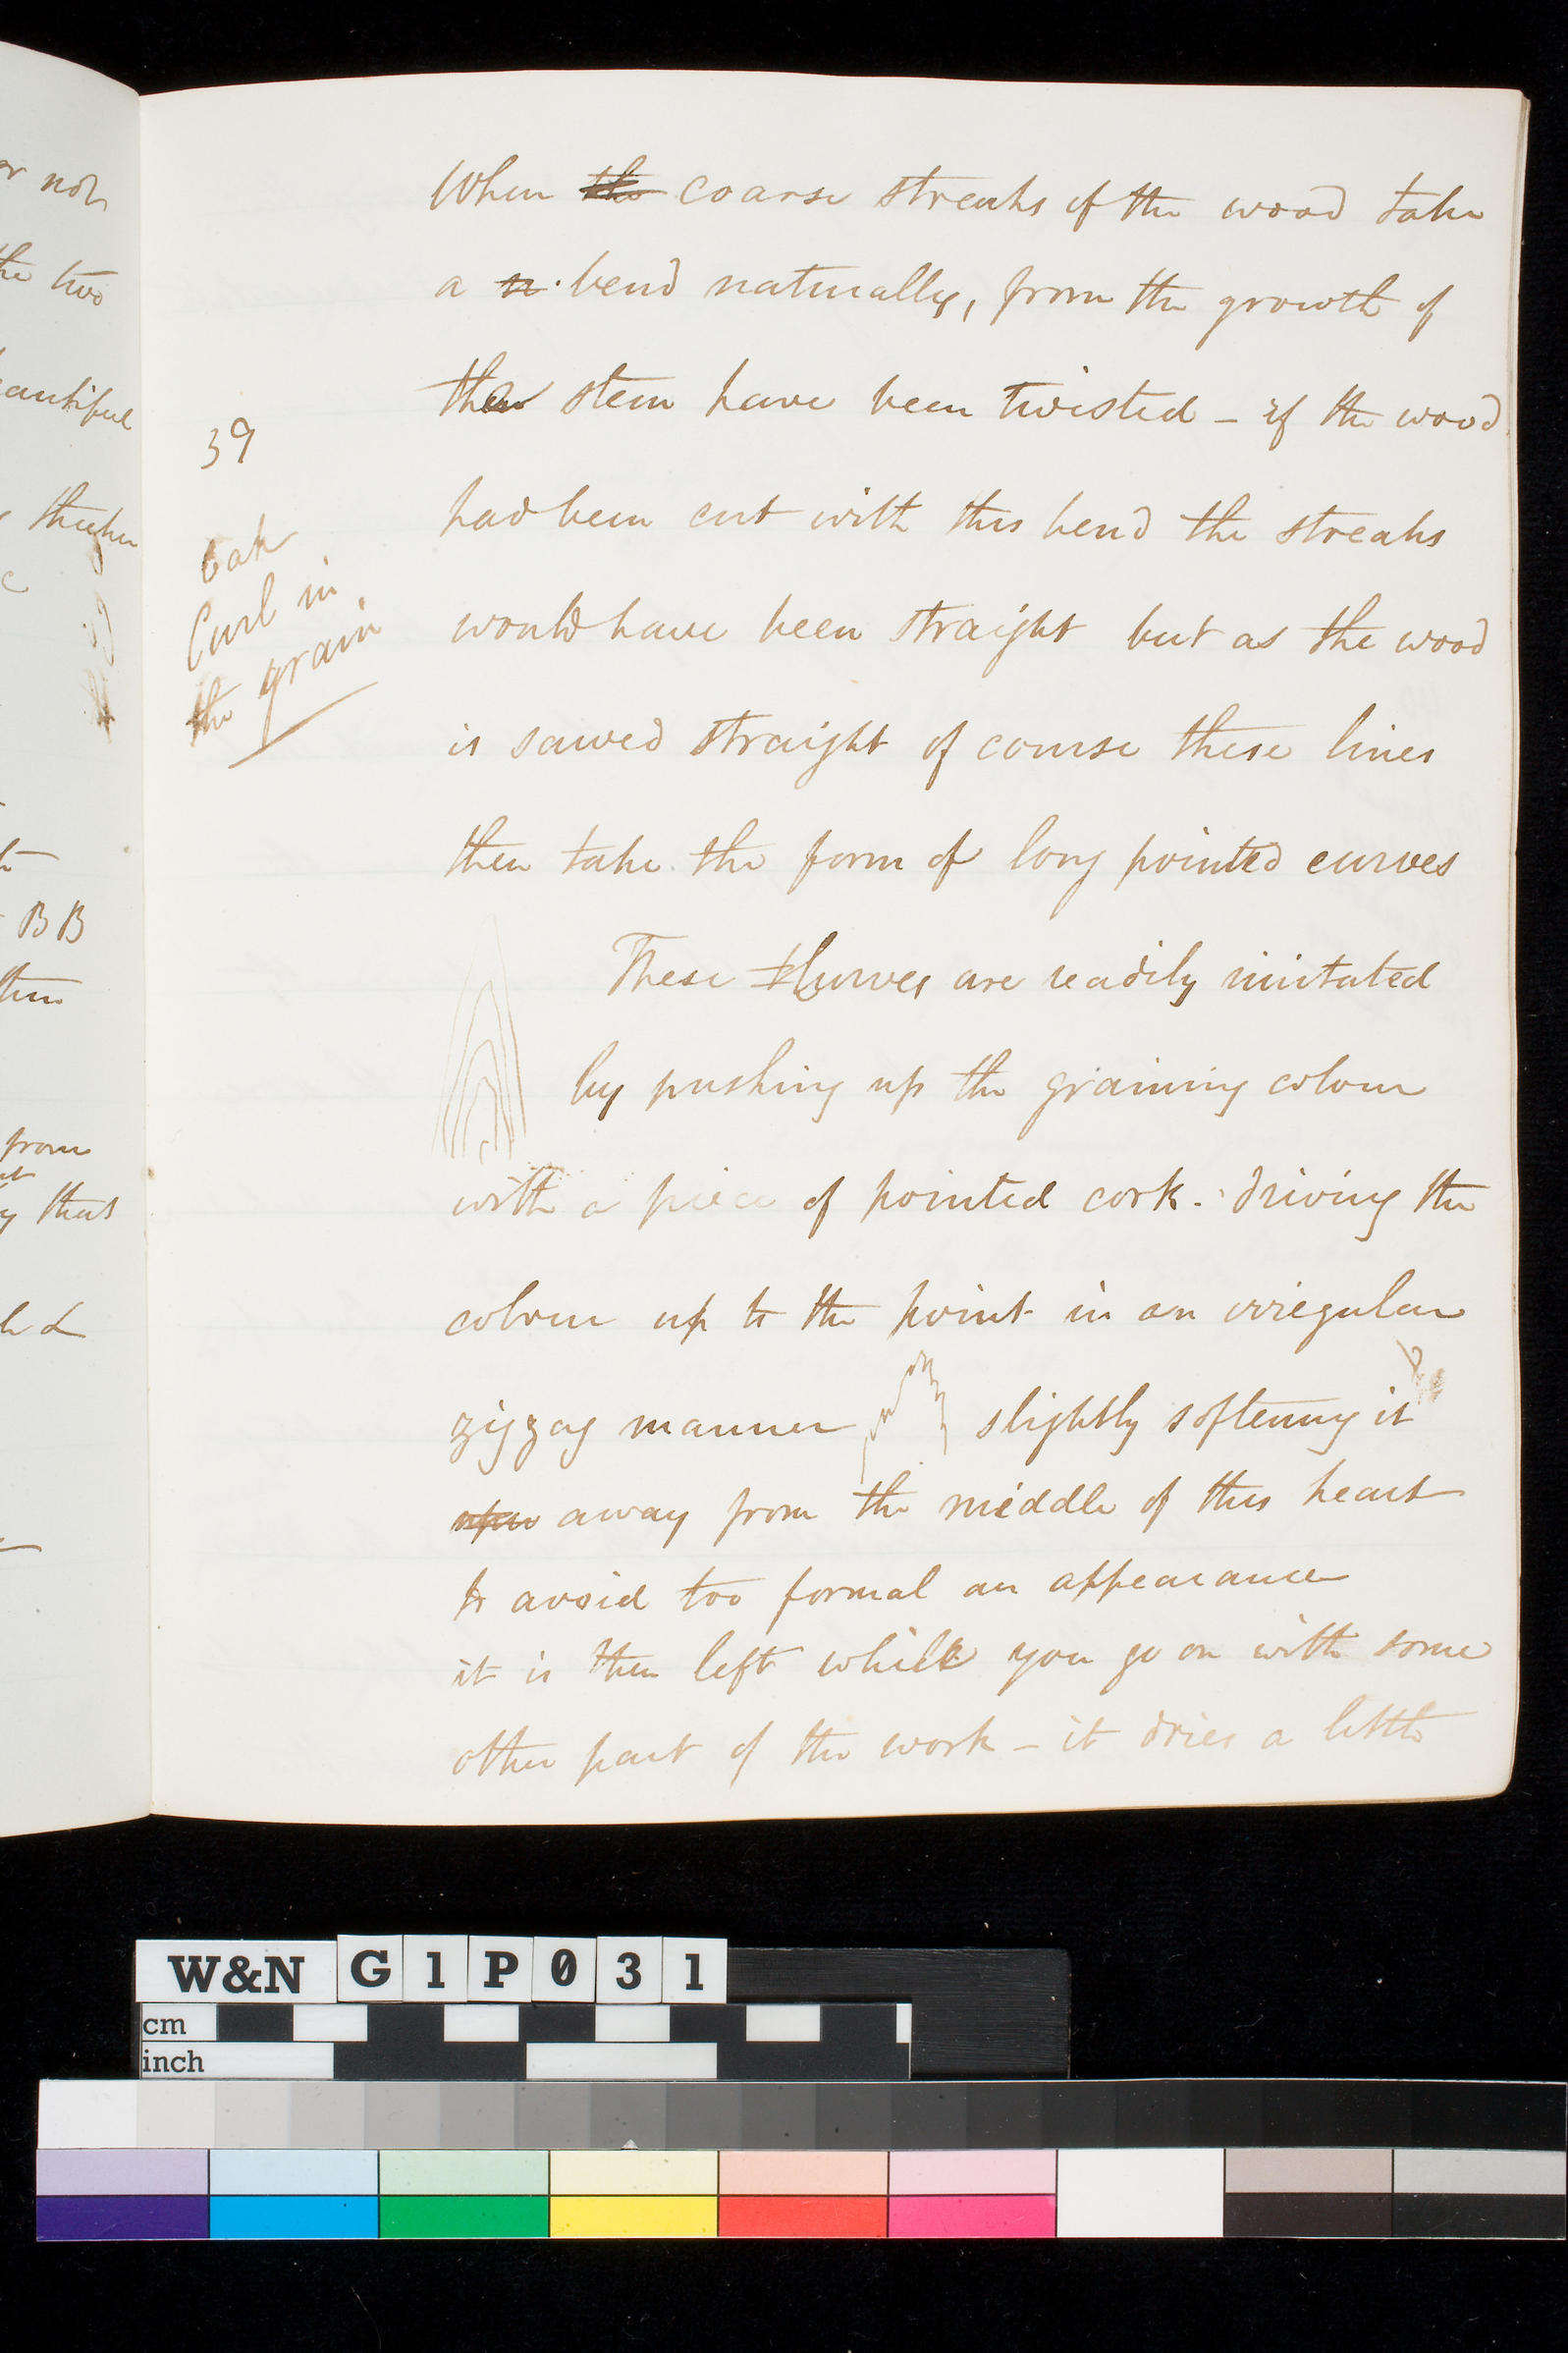 or not
the two
beautiful
thicker
BB
them
from
that
39
Oak
Curl in
the grain
When the coarse streaks of the wood take
a n bend naturally, from the growth of
the stem have been twisted – if the wood
had been cut with this bend the streaks
would have been straight but as the wood
is sawed straight of course these lines
then take the form of long pointed curves
These curves are readily imitated
by pushing up the graining colour
with a piece of pointed cork. driving the
colour up to the point in an irregular
zigzag manner slightly softening it
away from the middle of this heart
to avoid too formal an appearance
it is then left while you go on with some
other part of the work – it dries a little
W&N G1P031
cm
inch